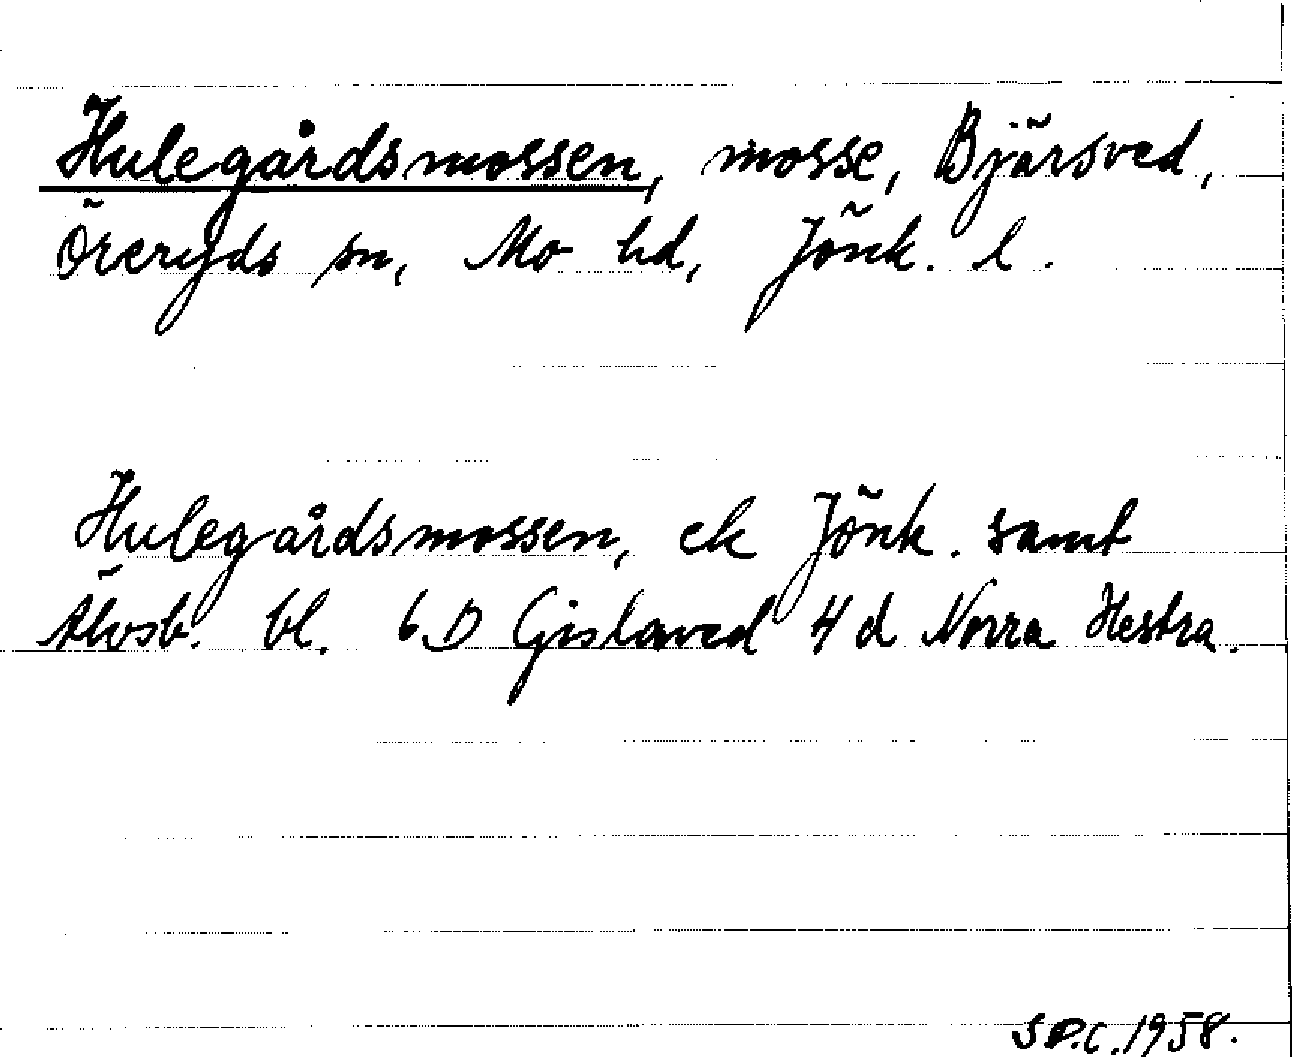 Hulegårdsmossen, mosse, Bjärsved,
Öreryds sn, Mo hd, Jönk. l.
Hulegårdsmossen, ek Jönk. samt
Älvsb. bl. 6D Gislaved 4d Norra Hestra.
S.D.C. 1958.